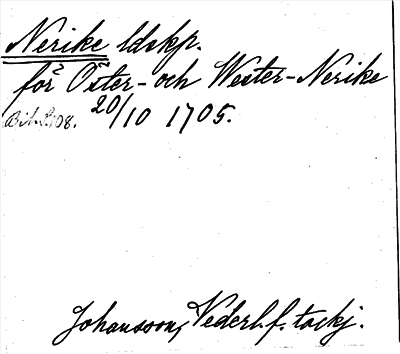 Nerike ldskp.
för Öster- och Wester-Nerike
20/10 1705.
Johansson, Vederl. f. tackj.